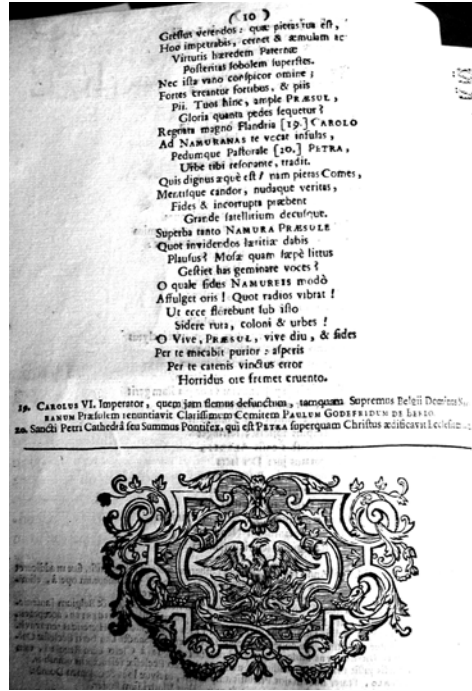 ( 10 )
Gressus verendos: quæ pietas tua est,
Hoc impetrabis, cernet & æmulam te
Virtutis hæredem Paternæ
Posteritas sobolem superstes.
Nec ista vano conspicor omine;
Fortes creantur fortibus, & piis
Pii. Tuos hinc, ample PRÆSUL,
Gloria quanta pedes sequetur?
Regnata magno Flandria [19.] CAROLO
Ad NAMURANAS te vocat insulas,
Pedumque Pastorale [20.] PETRA,
Urbe tibi resonante, tradit.
Quis dignus æquè est? nam pietas Comes,
Mentisque candor, nudaque veritas,
Fides & incorrupta præbent
Grande satellitium decusque.
Superba tanto NAMURA PRÆSULE
Quot invidendos lætitiæ dabis
Plausus? Mosæ quam sæpè littus
Gestiet has geminare voces?
O quale sidus NAMUREIS modò
Affulget oris! Quot radios vibrat!
Ut ecce florebunt sub isto
Sidere rura, coloni & urbes!
O Vive, PRÆSUL, vive diu, & fides
Per te micabit purior: asperis
Per te catenis vinctus error
Horridus ore fremet cruento.
19. CAROLUS VI. Imperator, quem jam flemus defunctum, tamquam Supremus Belgii
RANUM Præsulem renuntiavit Clarissimum Comitem PAULUM GODEFRIDUM DE
20. Sancti Petri Cathedrâ seu Summus Pontifex, qui est PETRA superquam Christus ædificavit